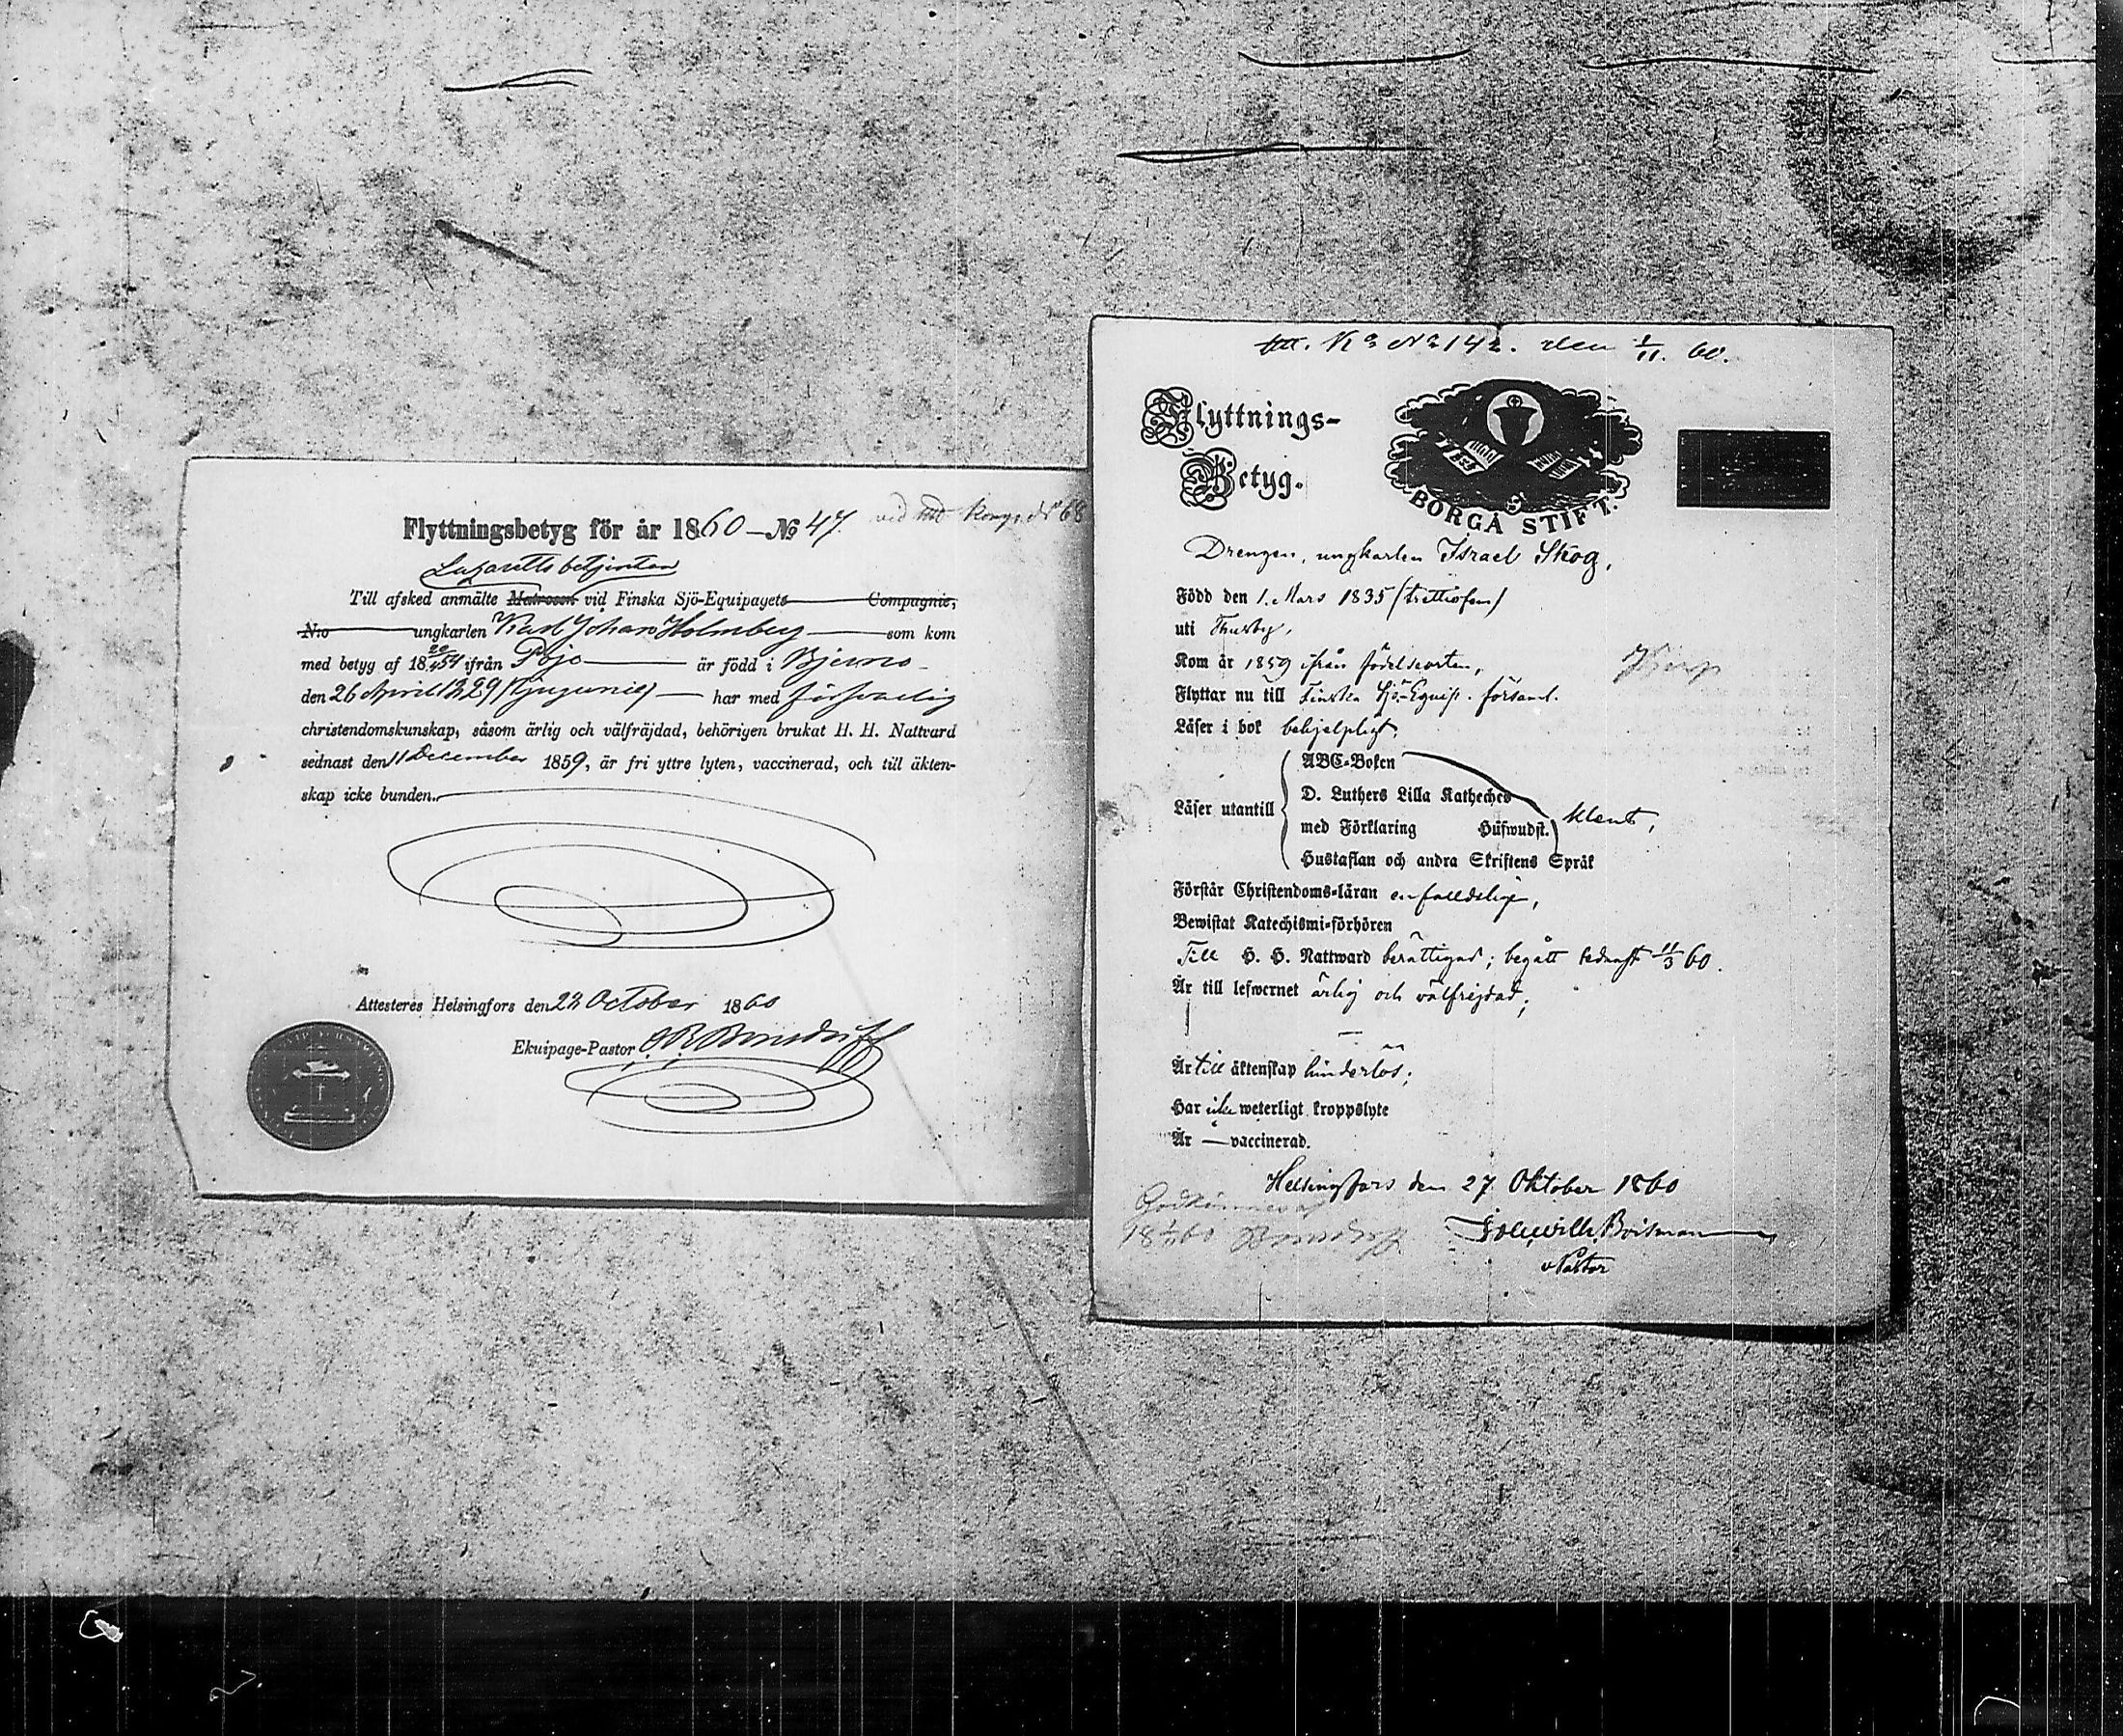 Flyttningsbetyg för år 1860 — No 47.
Lazaretts betjenten
Till afsked anmälte Matrosen vid Finska Sjö-Equipagets Compagnie,
N:o ungkarlen Karl Johan Holmberg som kom
med betyg af 18 20/4 54 ifrån Pojo är född i Bjerno
den 26 April 1829 (tjugunie) har med försvarlig
christendomskunskap, såsom ärlig och välfräjdad, behörigen brukat H. H. Nattvard
sednast den 11 December 1859, är fri yttre lyten, vaccinerad, och till äkten-
skap icke bunden.
Attesteres Helsingfors den 23 October 1860
Ekuipage-Pastor
No 142. den 1/11. 60.
Flyttnings-
Betyg.
BORGÅ STIFT.
Drengen, ungkarlen Israel Skog,
Född den 1. Mars 1835 (trettiofem)
uti Thusby,
Kom år 1859 ifrån födelseorten,
Flyttar nu till Finska Sjö-Equip. församl.
Läser i bok behjelpligt,
Läser utantill
ABC-Boken
D. Luthers Lilla Katheches
med Förklaring Hüfwudst.
Hustaflan och andra Skriftens Språk
klent,
Förstår Christendoms-läran enfaldeligen,
Bewistat Katechismi-förhören
Till H. H. Nattward berättigad; begått sednast 11/3 60.
Är till lefwernet ärlig och välfrejdad;
Är till äktenskap hinderlös;
Har icke weterligt kroppslyte
Är — vaccinerad.
Helsingfors den 27 Oktober 1860
Godkännes af
18 1/11 60
Boisman
v Pastor